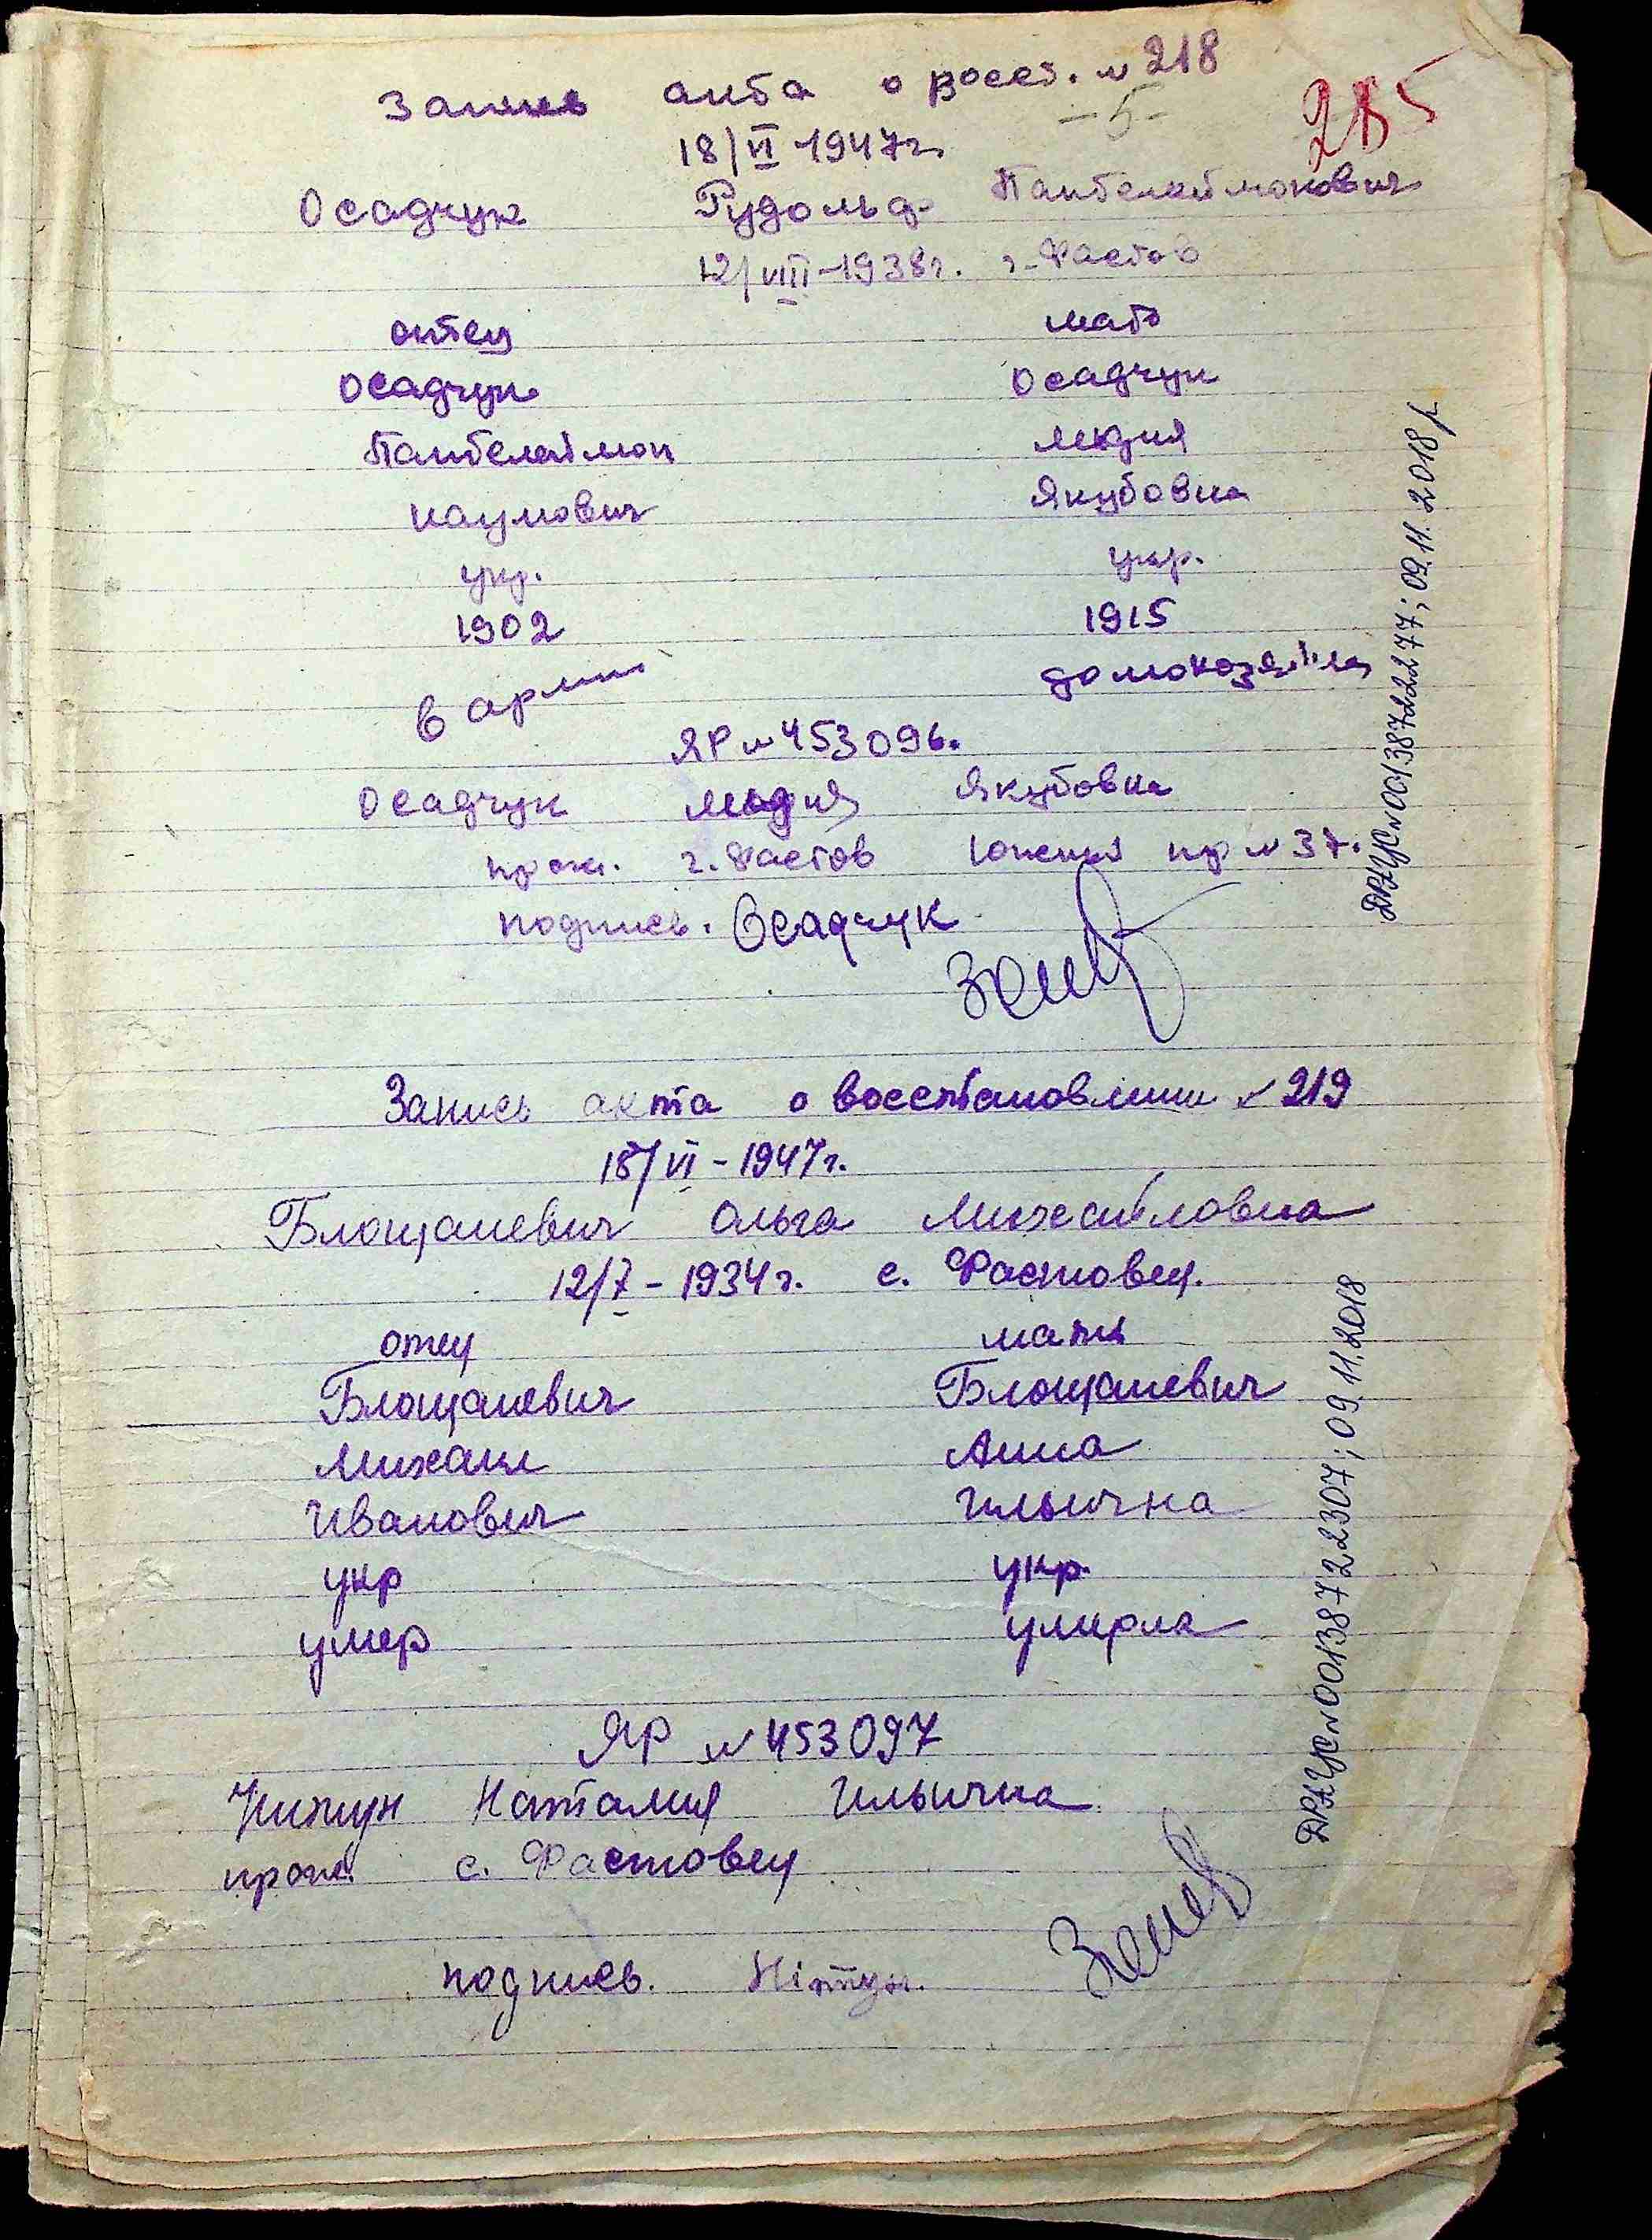 Запись акта о восст. № 218
- 5 -
285
18/VI-1947г.
Осадчук Рудольф Пантелеймонович
12/VIII-1938г. г. Фастов
отец мать
Осадчук Осадчук
Пантелеймон Лидия
Наумович Якубовна
укр. укр.
1902 1915
в армии домохозяйка
ЯР № 453096.
Осадчук Лидия Якубовна
прож. г. Фастов № 37.
подпись. Осадчук
ДРАЦС №00138722277; 09.11.2018р
Запись акта о восстановлении № 219
18/VI-1947г.
Блощаневич Ольга Михайловна
12/V-1934г. с. Фастовец.
отец мать
Блощаневич Блощаневич
Михаил Анна
Иванович Ильична
укр укр.
умер умерла
ЯР № 453097
Наталия Ильична
прож. с. Фастовец
подпись.
ДРАЦС №00138722307; 09.11.2018